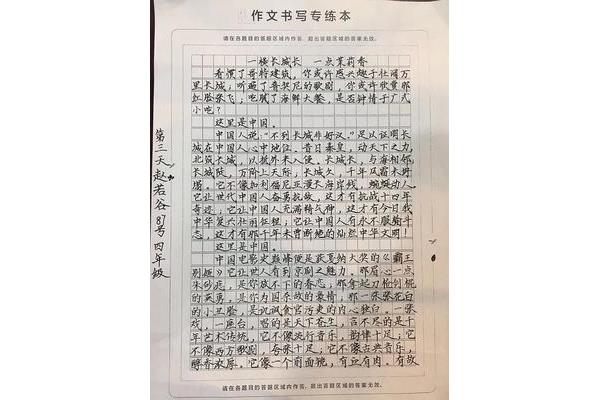 作文书写专练本
请在各题目的答题区域内作答，超出答题区域的答案无效。
一横长城长 一点茉莉香
看惯了哥特建筑，你或许感兴趣于壮阔万
里长城；听遍了普契尼的歌剧，你或许欣赏那
红脸张飞；吃腻了海鲜大餐，是否钟情于广式
小吃？
这里是中国。
中国人说"不到长城非好汉。"足以证明长
城在中国人心中地位。昔日秦皇，动天下之力，
北筑长城，以拔外来入侵。长城长，与海相邻
长城陡，万阶上天际，长城久，千年风霜未坍
塌。它不像加利福尼亚漫长海岸线，蜿蜒动人。
它让世代中国人奋勇抗敌，这才有抗战十四年
奇迹；它让中国人充满精气神，这才有今日我
中华复兴壮丽征程；它让中国人有永不服输斗
志，这才有那千年未曾断绝的灿烂中华文明！
这里是中国。
中国电影史巅峰便是获戛纳大奖的《霸王
别姬》它让世人看到京剧之魅力，那眉心一点
朱砂痣，是你放不下的眷恋，那拿起刀枪剑棍
的英勇，是你为国杀敌的豪情，那一张张花白
的小丑脸，是讥讽贪官污吏的内心独白。一张
戏，一座台，唱的是天下苍生，言不尽的是千
年艺术传统，它不像流行音乐，韵律十足；它
不像西方歌剧，夸张十足，它不像古典音乐，
醇香浓厚。它像一个前面镜，有血有肉。有故
请在各题目的答题区域内作答，超出答题区域的答案无效。
第三天 赵若谷 87号 四年级